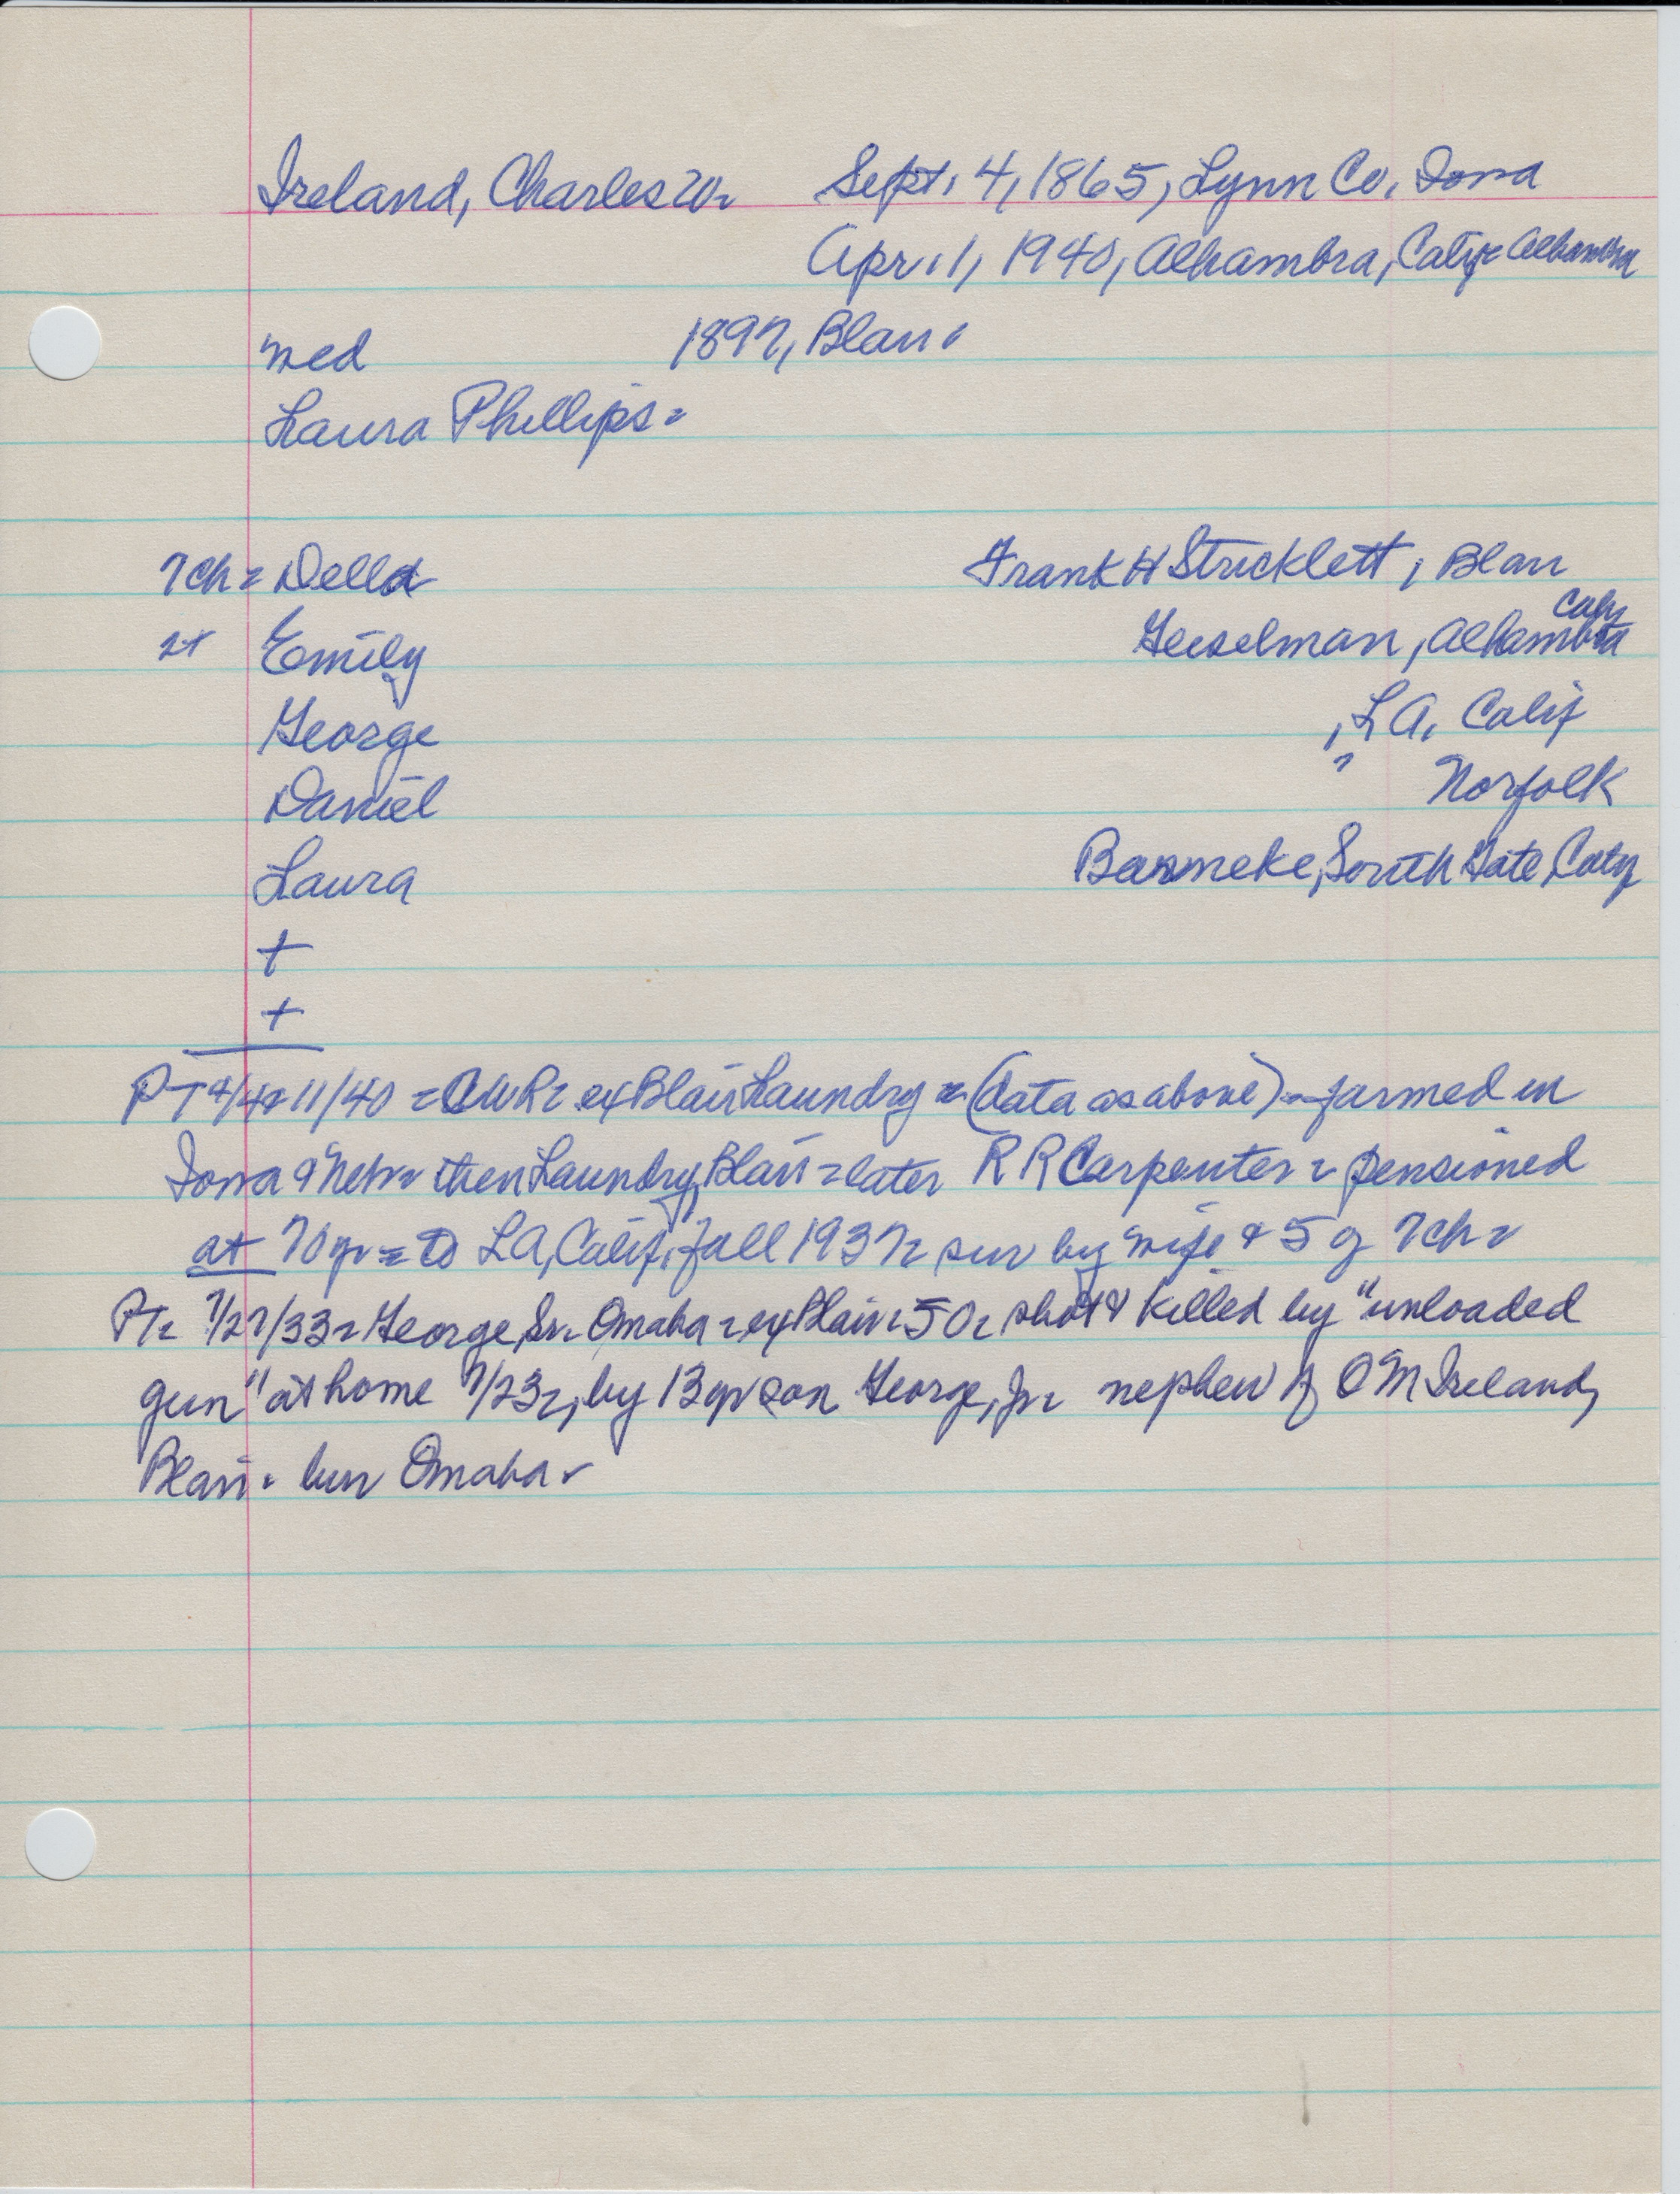 Ireland, Charles W= Sept. 4, 1865, Lynn Co. Iowa
Apr. 1, 1940, Alhambra, Calif= Alhambra
med 1897, Blair.
Laura Phillips=
7ch= Della Frank H Stricklett, Blair
2+ Emily Geiselman, Alhambra Calif
George , L A, Calif
Daniel " Norfolk
Laura Barmeke, South Gate, Calif
+
+
PT 4/11/40 = CWR= ex Blair Laundry = (data as above) = farmed in
Iowa & Neb= then Laundry, Blair = later R R Carpenter = pensioned
at 70 yr = to LA, Calif, fall 1937= sur by wife & 5 of 7ch=
PT= 7/27/33= George, Sr= Omaha = ex Blair= 50= shot & killed by "unloaded
gun" at home 7/23=, by 13 yr son George, Jr= nephew of O M Ireland,
Blair. bur Omaha=